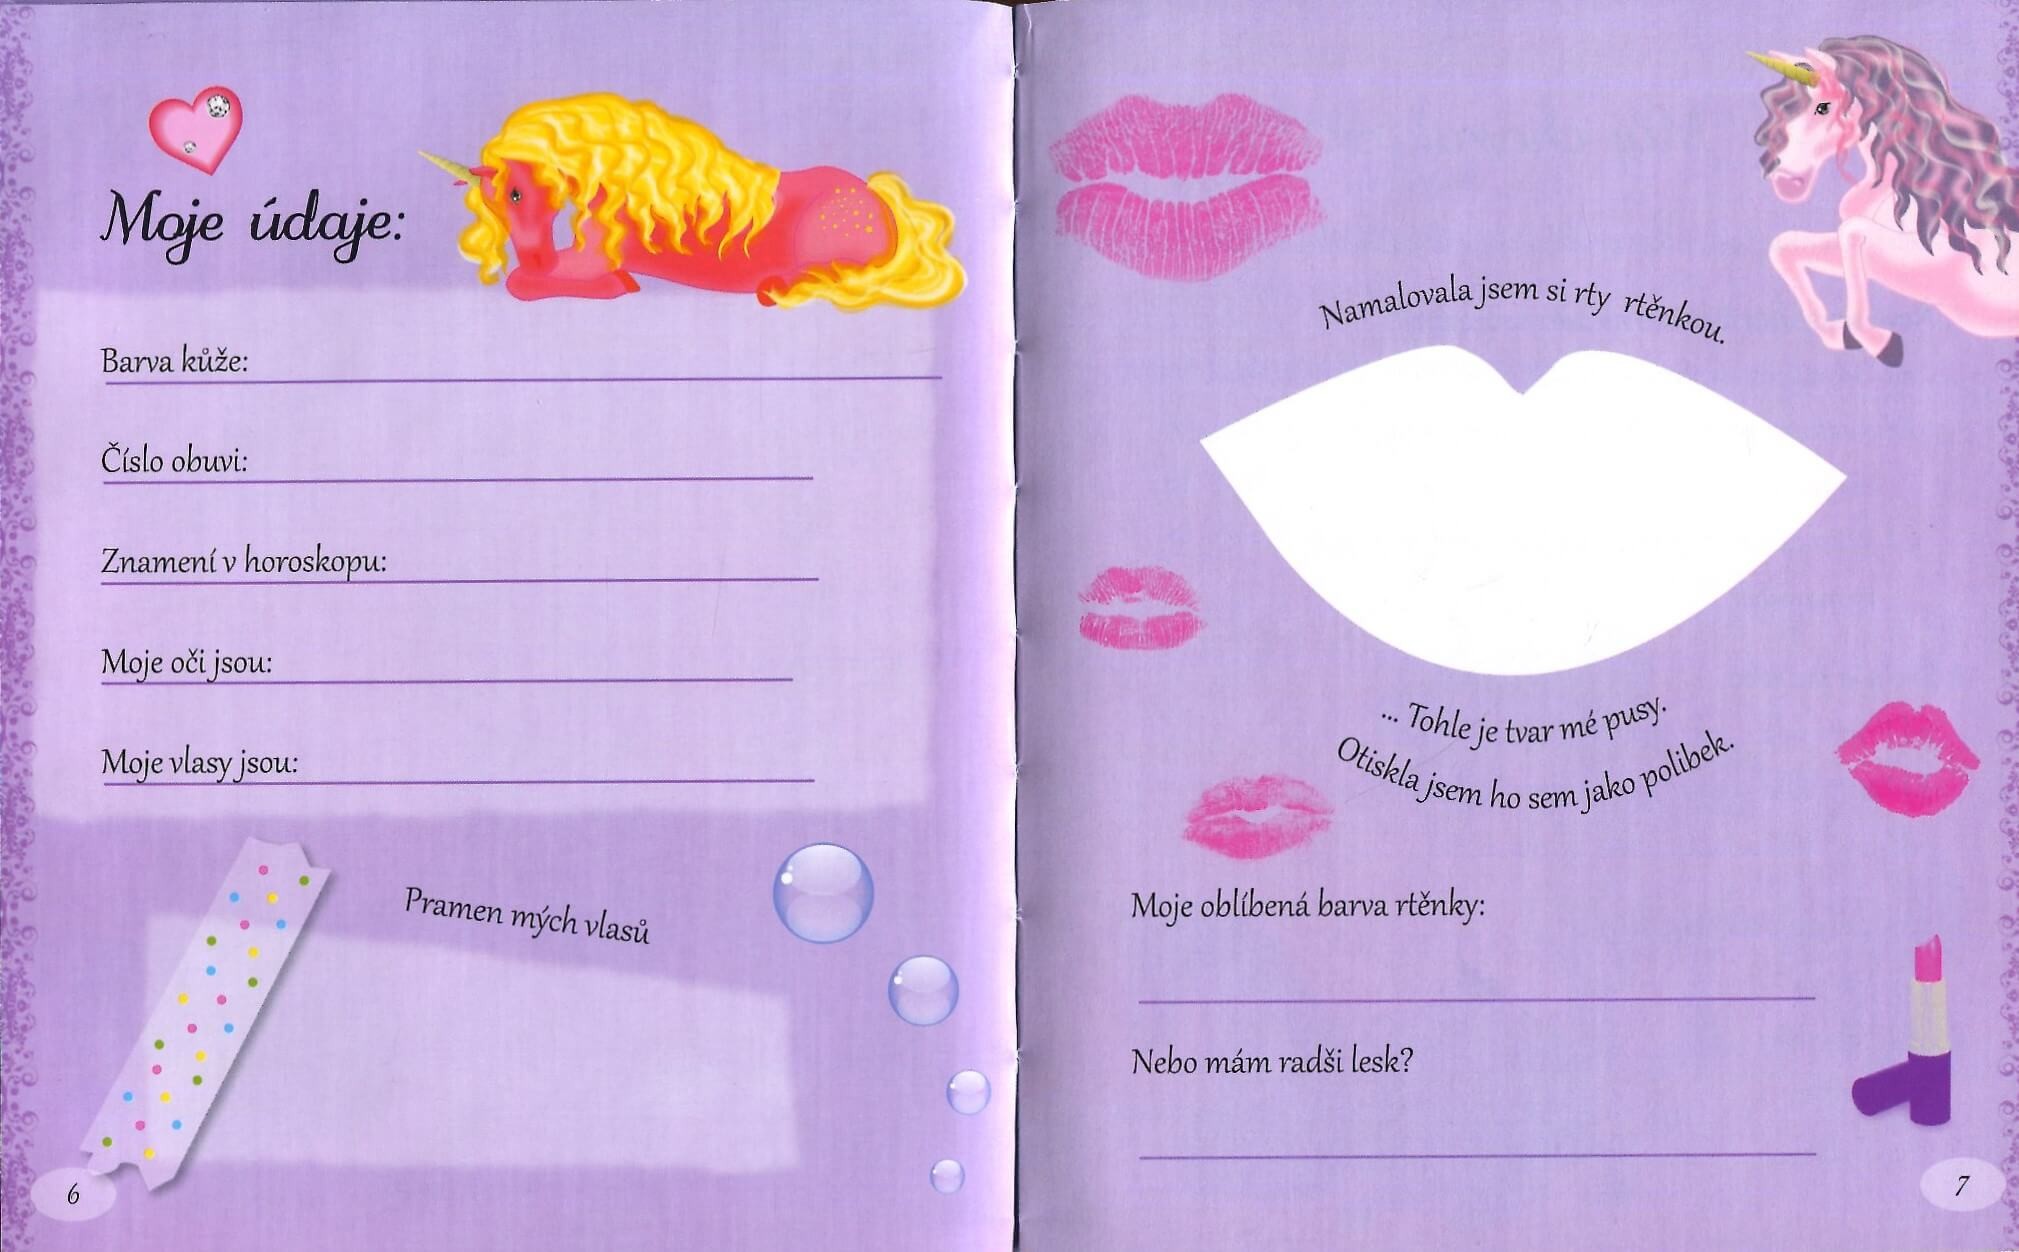 Moje údaje:
Barva kůže:
Číslo obuvi:
Znamení v horoskopu:
Moje oči jsou:
Moje vlasy jsou:
Pramen mých vlasů
6
Namalovala jsem si rty rtěnkou.
... Tohle je tvar mé pusy.
Otiskla jsem ho sem jako polibek.
Moje oblíbená barva rtěnky:
Nebo mám radši lesk?
7